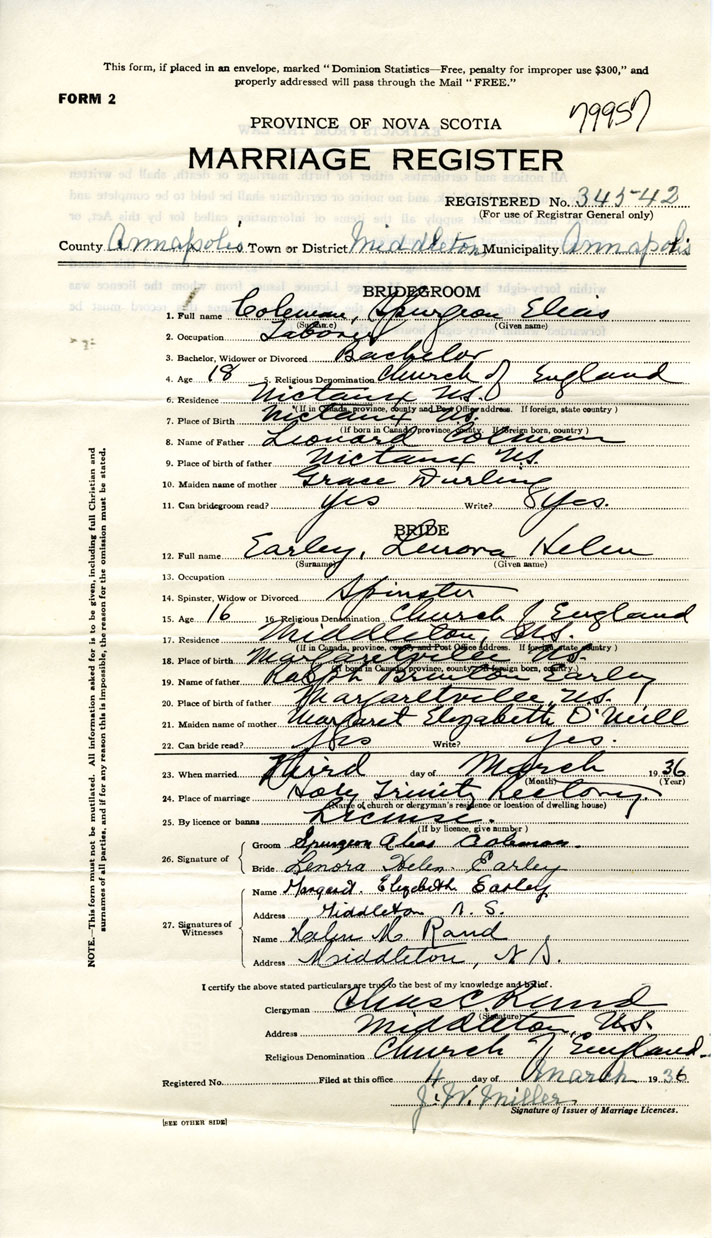 This form, if placed in an envelope, marked "Dominion Statistics—Free, penalty for improper use $300," and
properly addressed will pass through the Mail "FREE."
FORM 2
79957
PROVINCE OF NOVA SCOTIA
MARRIAGE REGISTER
REGISTERED No. 345-42
(For use of Registrar General only)
County Annapolis Town or District Middleton Municipality Annapolis
BRIDEGROOM
1. Full name Coleman, Spurgeon Elias
(Surname) (Given name)
2. Occupation Laborer
3. Bachelor, Widower or Divorced Bachelor
4. Age 18 5. Religious Denomination Church of England
6. Residence Nictaux N.S.
(If in Canada, province, county and Post Office address. If foreign, state country)
7. Place of Birth Nictaux N.S.
(If born in Canada, province, county. If foreign born, country)
8. Name of Father Leonard Colman
9. Place of birth of father Nictaux N.S.
10. Maiden name of mother Grace Durling
11. Can bridegroom read? Yes Write? Yes.
BRIDE
12. Full name Earley, Lenora Helen
(Surname) (Given name)
13. Occupation
14. Spinster, Widow or Divorced Spinster
15. Age 16 16. Religious Denomination Church of England
17. Residence Middleton, N.S.
(If in Canada, province, county and Post Office address. If foreign, state country)
18. Place of birth Margaretville N.S.
(If born in Canada, province, county. If foreign born, country)
19. Name of father Ralph Brinton Earley
20. Place of birth of father Margaretville, N.S.
21. Maiden name of mother Margaret Elizabeth O'Neill
22. Can bride read? Yes Write? Yes.
23. When married Third day of March 1936
(Month) (Year)
24. Place of marriage Holy Trinity Rectory.
(Name of church or clergyman's residence or location of dwelling house)
25. By licence or banns License.
(If by licence, give number)
26. Signature of
Groom Spurgeon Elias Coleman.
Bride Lenora Helen Earley
27. Signatures of Witnesses
Name Margaret Elizabeth Earley
Address Middleton N.S.
Name M. Rand
Address Middleton, N.S.
I certify the above stated particulars are true to the best of my knowledge and belief.
Clergyman Chas C
(Signature)
Address Middleton, N.S.
Religious Denomination Church of England.
Registered No. Filed at this office 4 day of March 1936
J. W. Miller
Signature of Issuer of Marriage Licences.
[SEE OTHER SIDE]
NOTE.—This form must not be mutilated. All information asked for is to be given, including full Christian and
surnames of all parties, and if for any reason this is impossible, the reason for the omission must be stated.